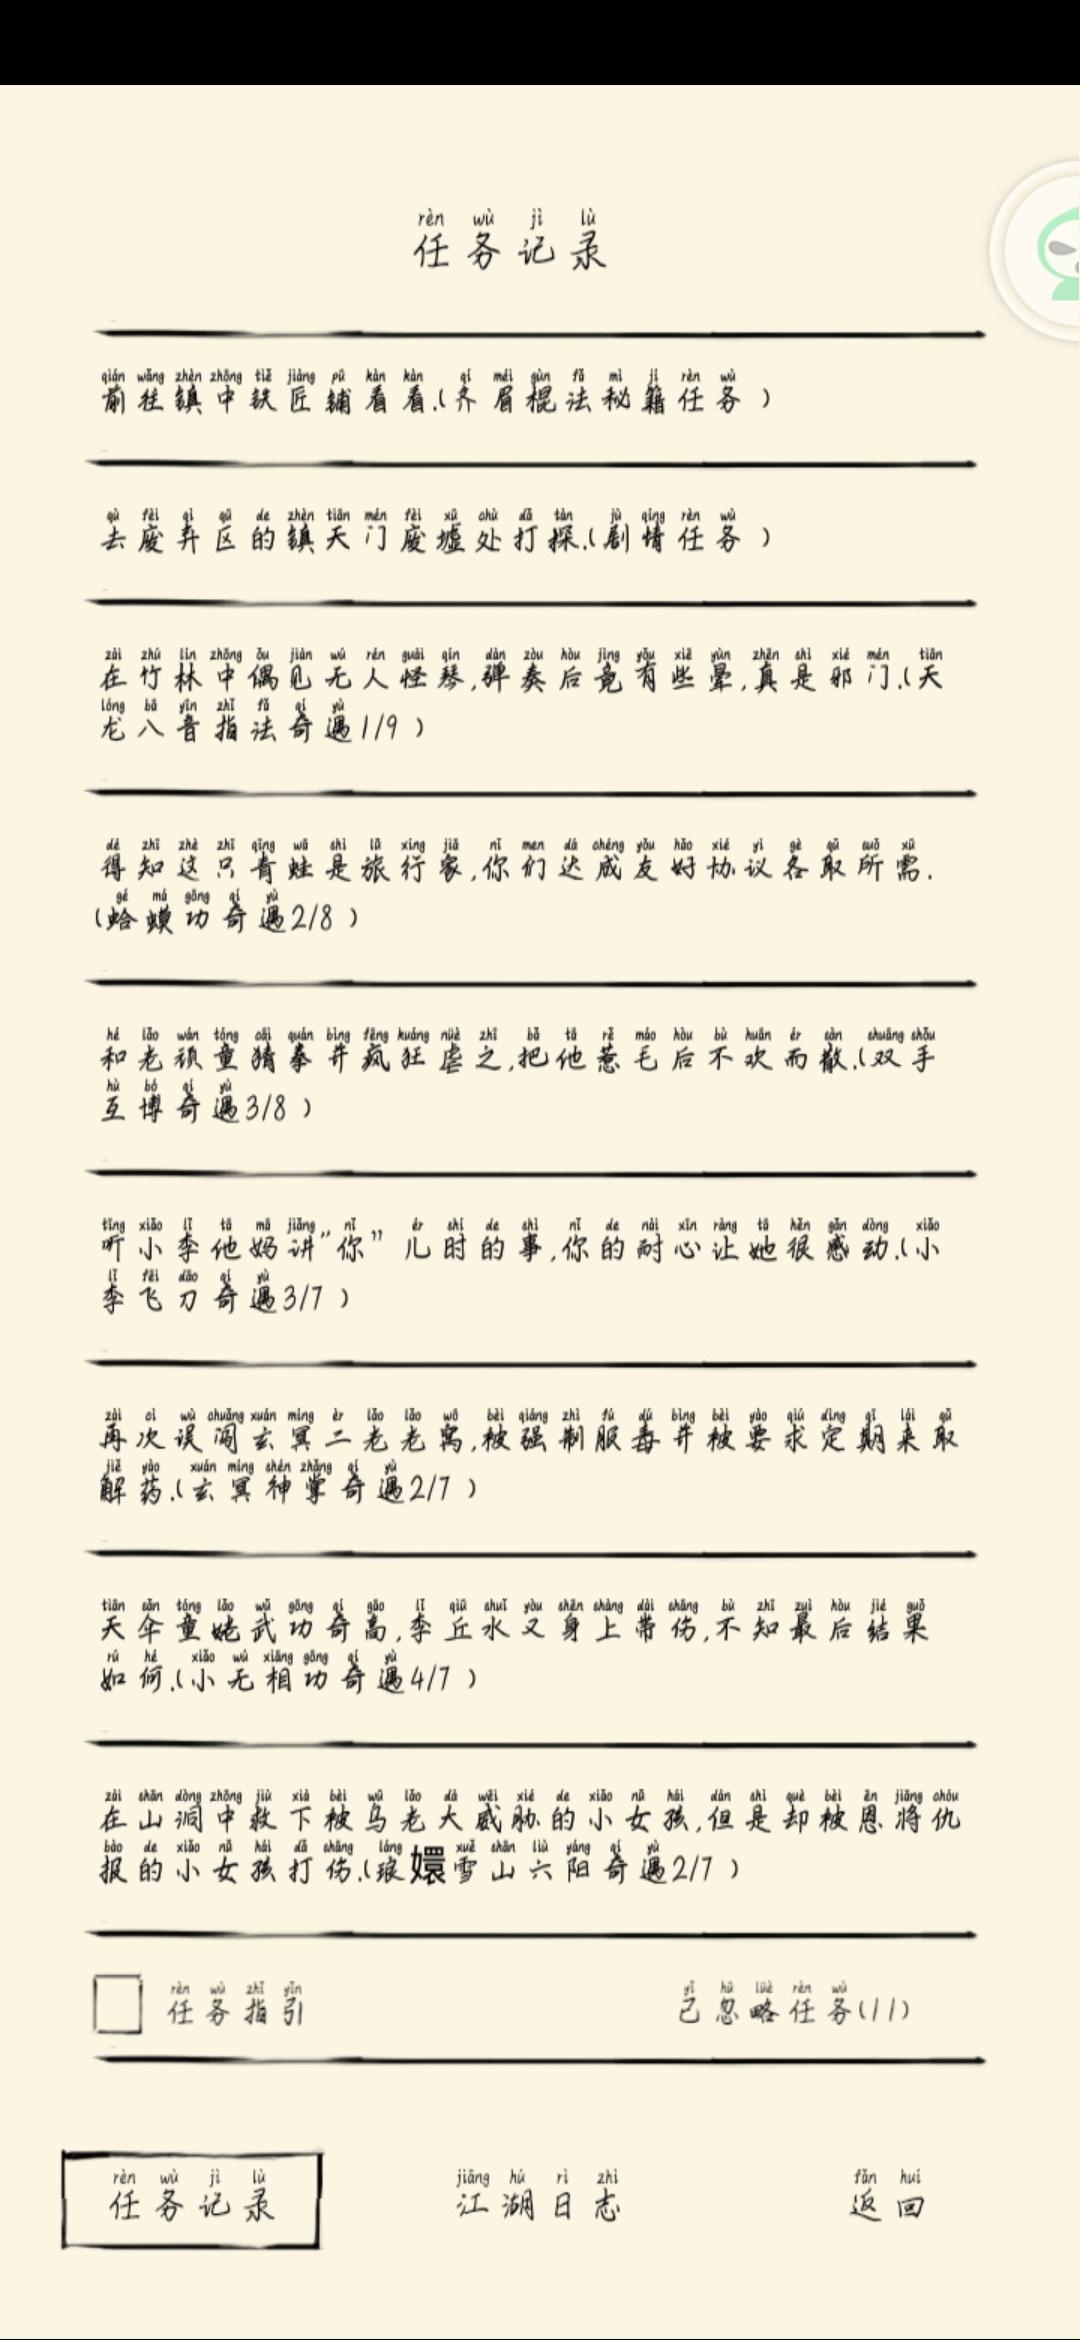 rèn wù jì lù
任务记录
qián wǎng zhèn zhōng tiě jiàng pū kàn kàn qí méi gùn fǎ mì jí rèn wù
前往镇中铁匠铺看看.(齐眉棍法秘籍任务)
qù fèi qì qū de zhèn tiān mén fèi xū chù dǎ tàn jù qíng rèn wù
去废弃区的镇天门废墟处打探.(剧情任务)
zài zhú lín zhōng ǒu jiàn wú rén guài qín dàn zòu hòu jìng yǒu xiē yùn zhēn shì xié mén tiān
在竹林中偶见无人怪琴,弹奏后竟有些晕,真是邪门.(天
lóng bā yīn zhǐ fǎ qí yù
龙八音指法奇遇1/9)
dé zhī zhè zhī qīng wā shì lǚ xíng jiā nǐ men dá chéng yǒu hǎo xié yì gè qǔ suǒ xū
得知这只青蛙是旅行家,你们达成友好协议各取所需.
gé má gōng qí yù
(蛤蟆功奇遇2/8)
hé lǎo wán tóng cāi quán bìng fēng kuáng nüè zhī bǎ tā rě máo hòu bù huān ér sàn shuāng shǒu
和老顽童猜拳并疯狂虐之,把他惹毛后不欢而散.(双手
hù bó qí yù
互博奇遇3/8)
tīng xiǎo lǐ tā mā jiǎng nǐ ér shí de shì nǐ de nài xīn ràng tā hěn gǎn dòng xiǎo
听小李他妈讲"你"儿时的事,你的耐心让她很感动.(小
lǐ fēi dāo qí yù
李飞刀奇遇3/7)
zài cì wù chuǎng xuán míng èr lǎo lǎo wō bèi qiáng zhì fú dú bìng bèi yào qiú dìng qī lái qǔ
再次误闯玄冥二老老窝,被强制服毒并被要求定期来取
jiě yào xuán míng shén zhǎng qí yù
解药.(玄冥神掌奇遇2/7)
tiān sǎn tóng lǎo wǔ gōng qí gāo lǐ qiū shuǐ yòu shēn shàng dài shāng bù zhī zuì hòu jié guǒ
天伞童姥武功奇高,李丘水又身上带伤,不知最后结果
rú hé xiǎo wú xiāng gōng qí yù
如何.(小无相功奇遇4/7)
zài shān dòng zhōng jiù xià bèi wū lǎo dà wēi xié de xiǎo nǚ hái dàn shì què bèi ēn jiāng chóu
在山洞中救下被乌老大威胁的小女孩,但是却被恩将仇
bào de xiǎo nǚ hái dǎ shāng láng xuě shān liù yáng qí yù
报的小女孩打伤.(琅嬛雪山六阳奇遇2/7)
rèn wù zhǐ yǐn yǐ hū lüè rèn wù
任务指引 已忽略任务(11)
rèn wù jì lù jiāng hú rì zhì fǎn huí
任务记录 江湖日志 返回